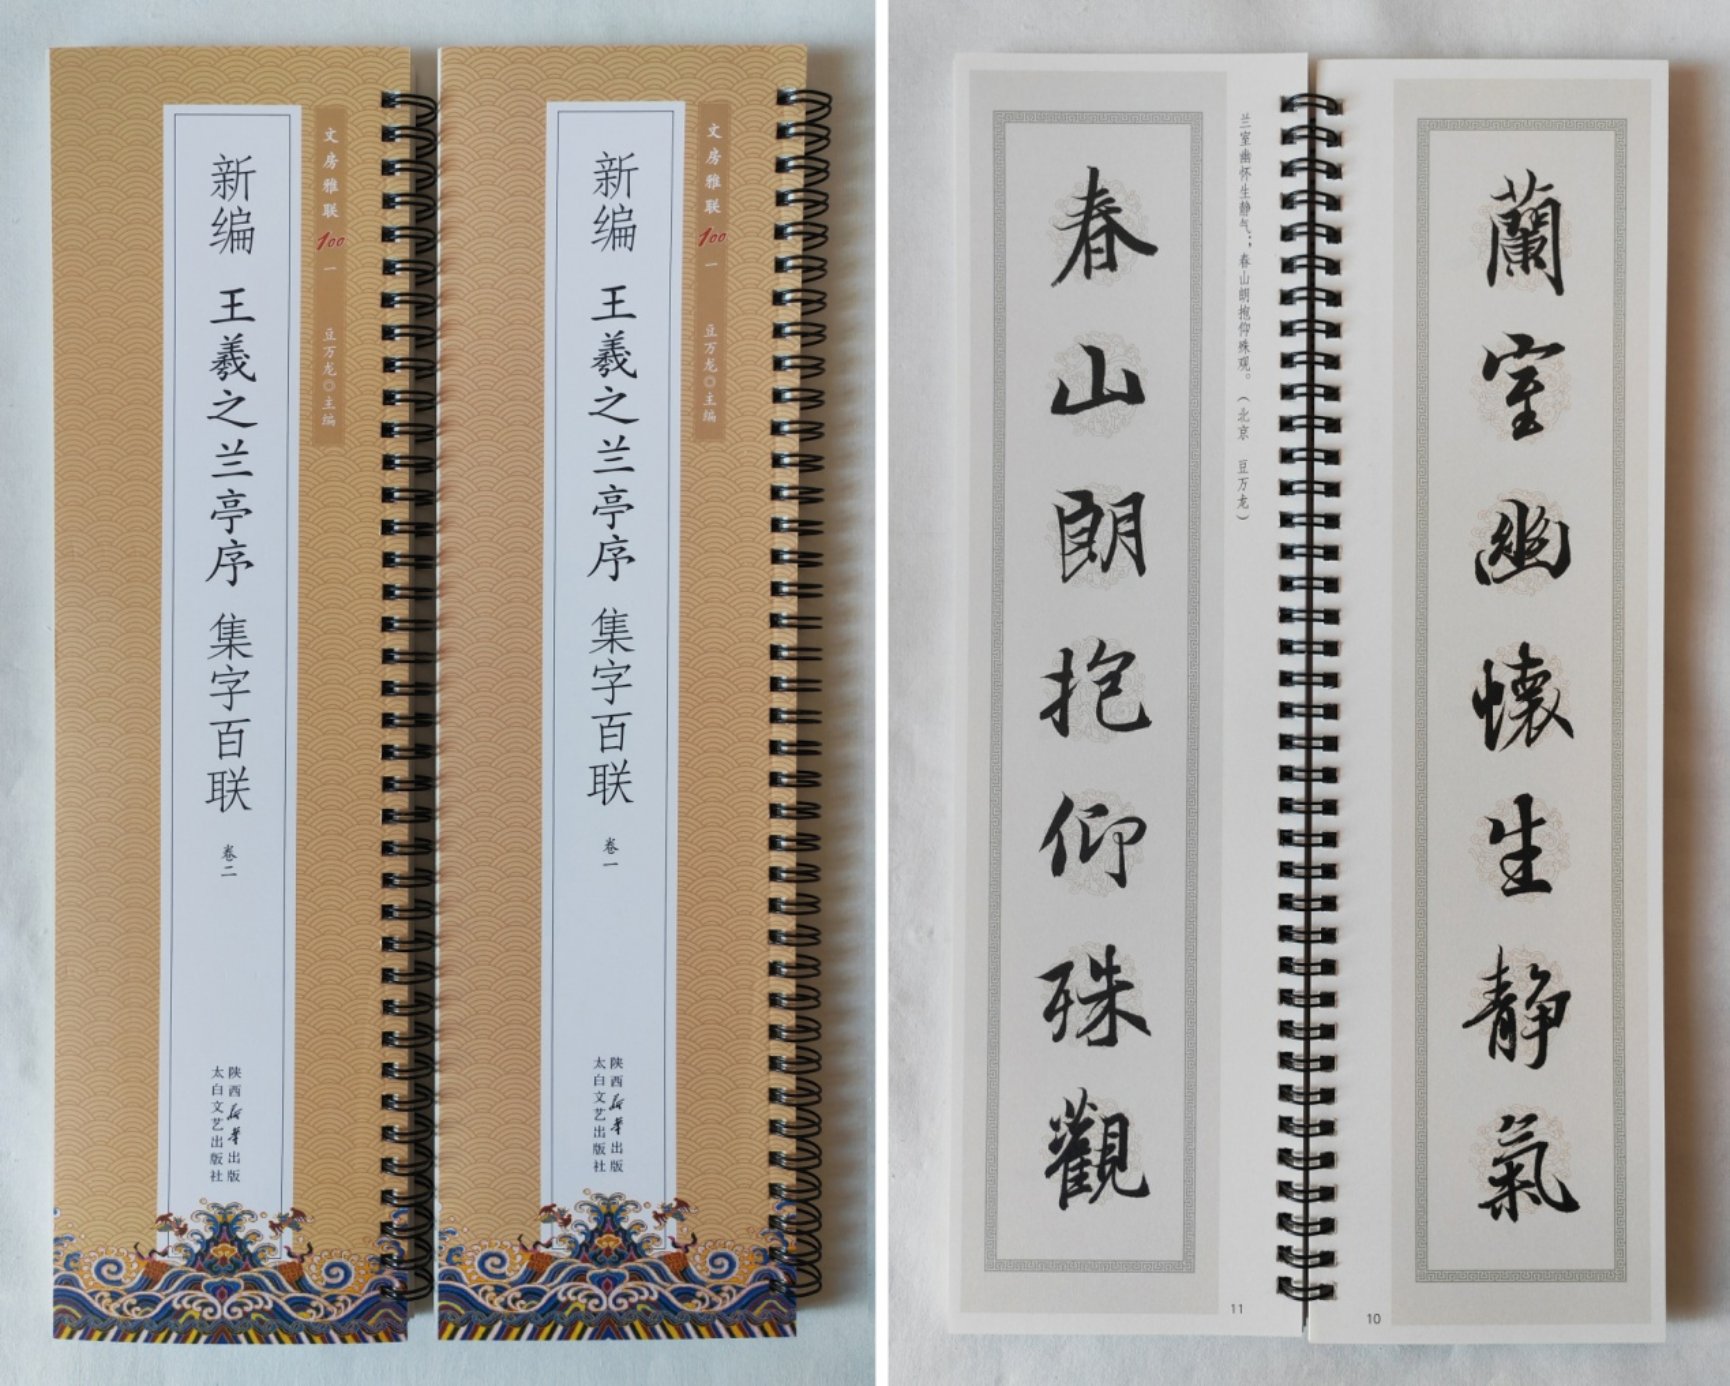 文房雅联100 一 豆万龙◎主编
新编 王羲之兰亭序 集字百联 卷二
陕西新华出版
太白文艺出版社
文房雅联100 一 豆万龙◎主编
新编 王羲之兰亭序 集字百联 卷一
陕西新华出版
太白文艺出版社
蘭室幽懷生靜氣
10
兰室幽怀生静气；春山朗抱仰殊观。（北京 豆万龙）
春山朗抱仰殊觀
11